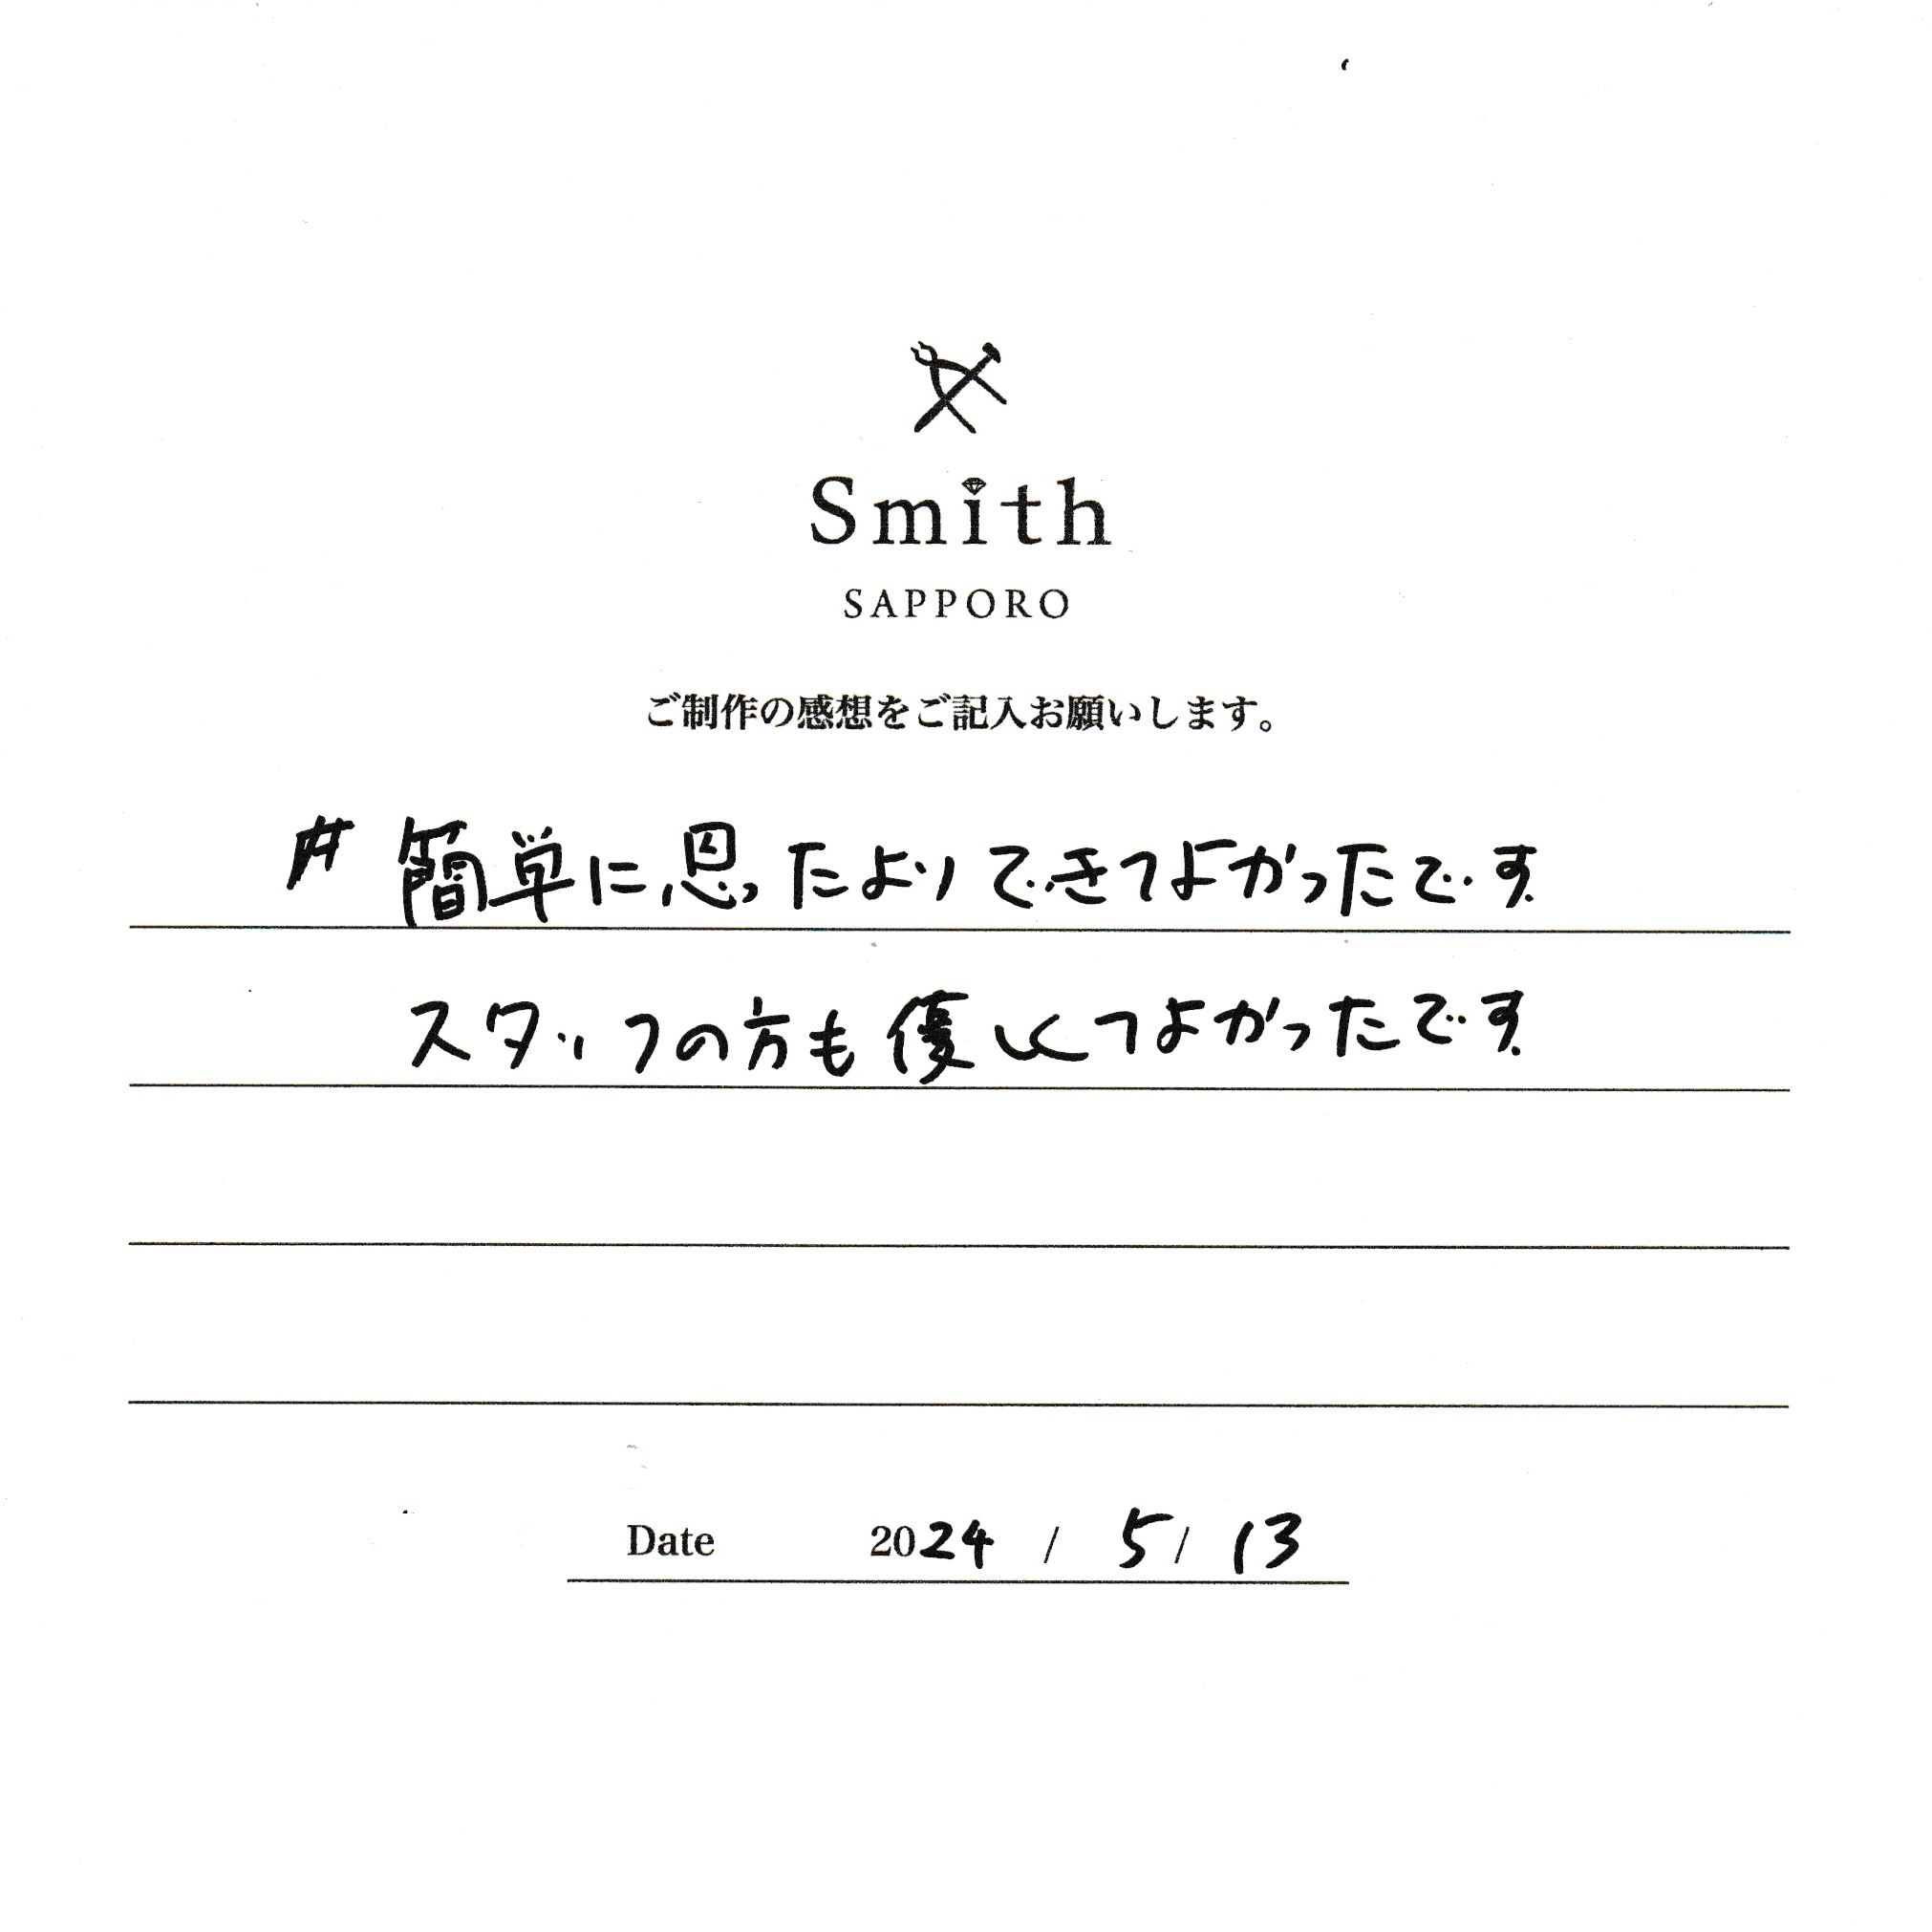 Smith
SAPPORO
ご制作の感想をご記入お願いします。
# 簡単に思ったよりできてよかったです
スタッフの方も優しくてよかったです
Date 2024 / 5 / 13